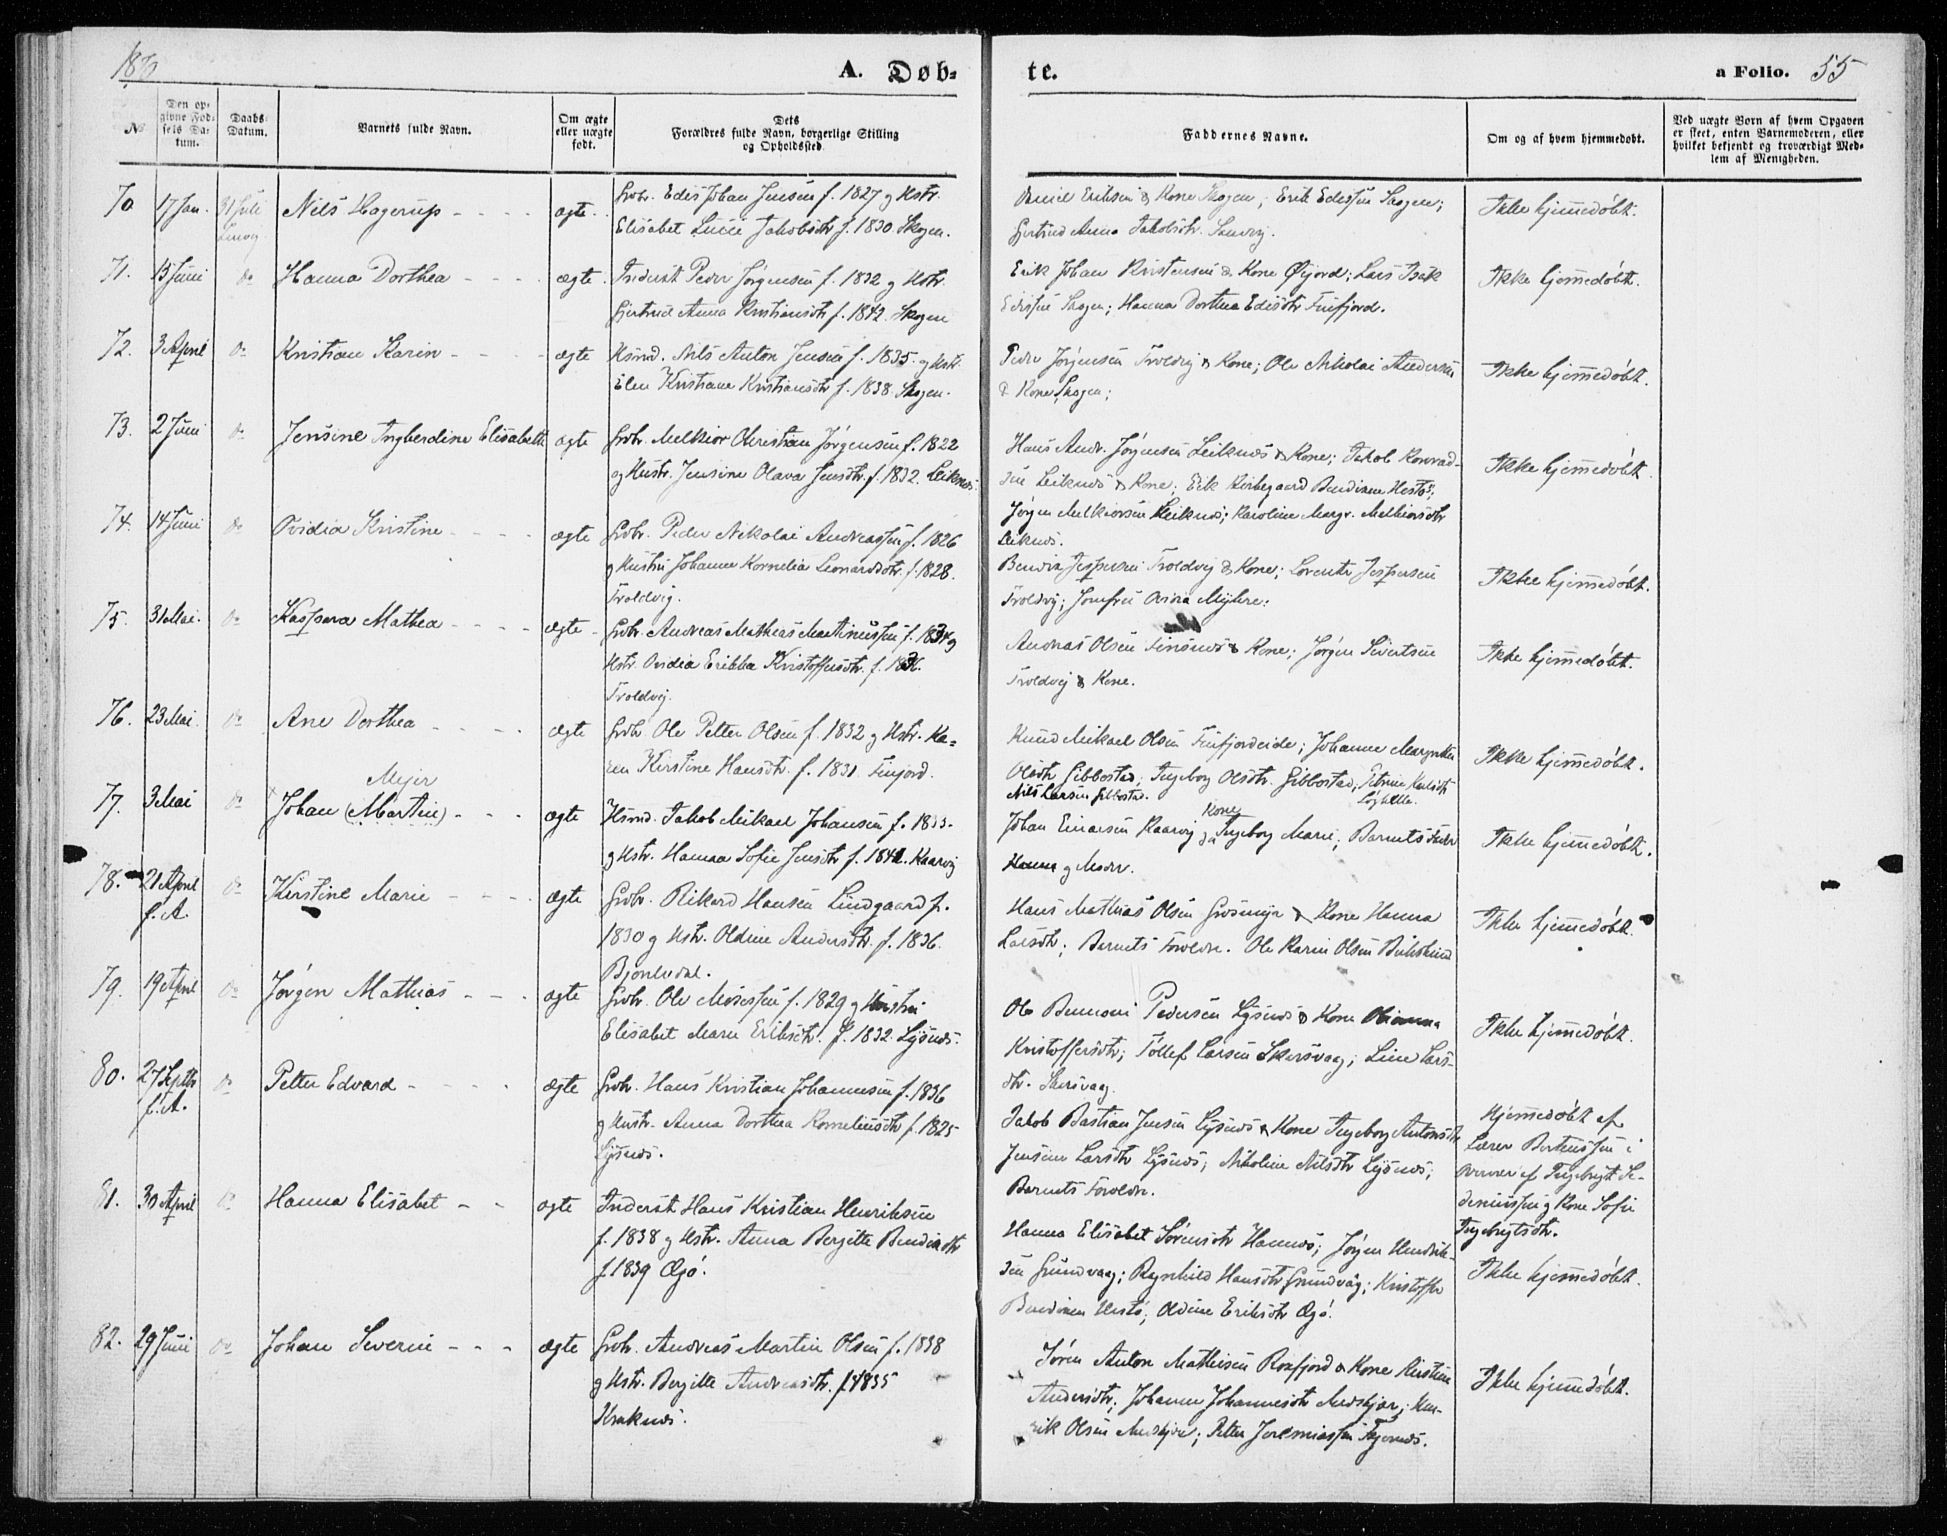 1870
A. Døb-
te.
a Folio. 55
No
Den op-
givne Fød-
sels Da-
tum.
Daabs-
Datum.
Varnets fulde Navn.
Om ægte
eller uægte
født.
Dets
Forældres fulde Navn, borgerlige Stilling
og Opholdssted.
Faddernes Navne.
Om og af hvem hjemmedøbt.
Ved uægte Born af hvem Opgaven
er skeet, enten Barnemoderen, eller
hvilket bekjendt og troværdigt Med-
lem af Menigheden.
70. 17 Jan. 31 Juli Nils Hagerup - - - - ægte.
Grbr. Edis Johan Jensen f. 1827 g Hstr.
Elisabet Lucie Jakobsdtr f. 1830 Skogen.
Daniel Eriksen & Kone Skogen; Erik Edissen Skogen;
Gertrud Anna Jakobsdtr.
Ikke hjemmedøbt.
71. 15 Juni do Hanna Dorthea - - - - ægte.
Inderst Peder Jørgensen f. 1832 g Hstr.
Gjertrud Anna Kristiansdtr f. 1842. Skogen
Erik Johan Kristensen & Kone Øijord; Lars Isak
Edissen Skogen; Hanna Dorthea Edisdtr Finfjord.
Ikke hjemmedøbt.
72. 3 April do Kristian Karin - - - - ægte
Hsmd. Nils Anton Jensen f. 1835. g Hstr.
Elen Kristiane Kristiansdtr f. 1838. Skogen.
Peder Jørgensen Troldvig & Kone; Ole Nikolai Andersen
& Kone, Skogen;
Ikke hjemmedøbt.
73. 2 Juni do Jensine Ingberdine Elisabeth ægte
Grbr. Melkior Christian Jørgensen f. 1822
g Hustr. Jensine Olava Jensdtr. f. 1832. Leiknes.
Hans Andr. Jørgensen Leiknes & Kone; Jakob Konrad-
sen Leiknes & Kone; Erik Kirkegaard Bendixen Hestø;
Jørgen Melkiorsen Leiknes; Karoline Margr. Melkiorsdtr
Leiknes.
Ikke hjemmedøbt.
74. 14 Juni do Ovidia Kristine - - - - ægte
Grbr. Peder Nikolai Andreassen f. 1826
g Hustru Johanna Kornelia Leonardsdtr. f. 1828.
Troldvig.
Bendix Jespersen Troldvig & Kone; Lorents Jespersen
Troldvig; Jomfru Ovina Myhre.
Ikke hjemmedøbt.
75. 31 Mai. do Kaspara Mathea - - - - ægte -
Grbr. Andreas Mathias Martinussen f. 1834 g
Hstr. Ovidia Erikka Kristoffersdtr. f. 1836.
Troldvig.
Andreas Olsen Finsnes & Kone; Jørgen Sivertsen
Troldvig & Kone.
Ikke hjemmedøbt.
76. 23 Mai. do Ane Dorthea - - - - ægte
Grbr. Ole Petter Olsen f. 1832 g Hstr. Ka-
ren Kirstine Hansdtr. f. 1831. Finjord.
Knud Mikael Olsen Finfjordeide; Johanna Margrethe
Olsdtr Gibbostad; Ingeborg Olsdtr. Gibbostad;
Nils Larsen Gibbostad.
Ikke hjemmedøbt.
77. 3 Mai do Johan (Martin) - - - ægte
Mejer
Hsmd. Jakob Mikael Johansen f. 1833.
g Hstr. Hanna Sofie Jensdtr f. 1842. Kaarvig
Johan Einarsen Kaarvig g Kone Ingeborg Marie; Barnets Fader
g Moder.
Ikke hjemmedøbt.
78. 21 April do Kirstine Marie - - - - ægte
f. A.
Grbr. Rikard Hansen Lindgaard f.
1830 g Hstr. Oldine Andersdtr. f. 1836.
Bjorelvdal.
Hans Mathias Olsen Grosmyr & Kone Hanna
Larsdtr; Barnets Foreldre. Ole Karin Olsen
Ikke hjemmedøbt.
79. 19 April do Jørgen Mathias - - - ægte
Grbr. Ole Mosessen f. 1829 g Hustru
Elisabet Marie Eriksdtr. f. 1832. Lysnes.
Ole Benoni Pedersen Lysnes & Kone
Kristoffersdtr; Tollef Larsen Skersvaag; Line Lars-
dtr. Skersvaag.
Ikke hjemmedøbt.
80. 27 Septbr do Petter Edvard - - - - ægte
f. A.
Grbr. Hans Kristian Johannesen f. 1836
g Hustr. Anna Dorthea Korneliusdtr f. 1825
Lysnes.
Jakob Bastian Jensen Lysnes & Kone Ingeborg Antonsdtr
Jensine Larsdtr Lysnes; Nikoline Nilsdtr Lysnes;
Barnets Foreldre.
Hjemmedøbt af
Lærer Berteussen i
overvær af Ingebrigt Se-
deniussen g Kone Sofie
Ingebrigtsdtr.
81. 30 April do Hanna Elisabet - - ægte
Inderst Hans Kristian Henriksen
f. 1838 g Hstr. Anna Bergitte Bendixdtr
f. 1839 Ægø.
Hanna Elisabet Sørensdtr Hannes; Jørgen Hendrik-
sen Grundvaag; Regnhild Hansdtr Grundvåg; Kristoffer
Bendixen Hestø; Oldine Eriksdtr Ægø.
Ikke hjemmedøbt.
82. 29 Juni do Johan Severin - - - ægte
Grbr. Andreas Martin Olsen f. 1838
g Hstr. Bergitte Andreasdtr. f. 1835
Kraknes.
Søren Anton Mathisen Roxfjord & Kone Kirstine
Andersdtr; Johanna Johannesdtr Medskjær; Hen-
rik Olsen Medskjær; Petter Jeremiassen
Ikke hjemmedøbt.